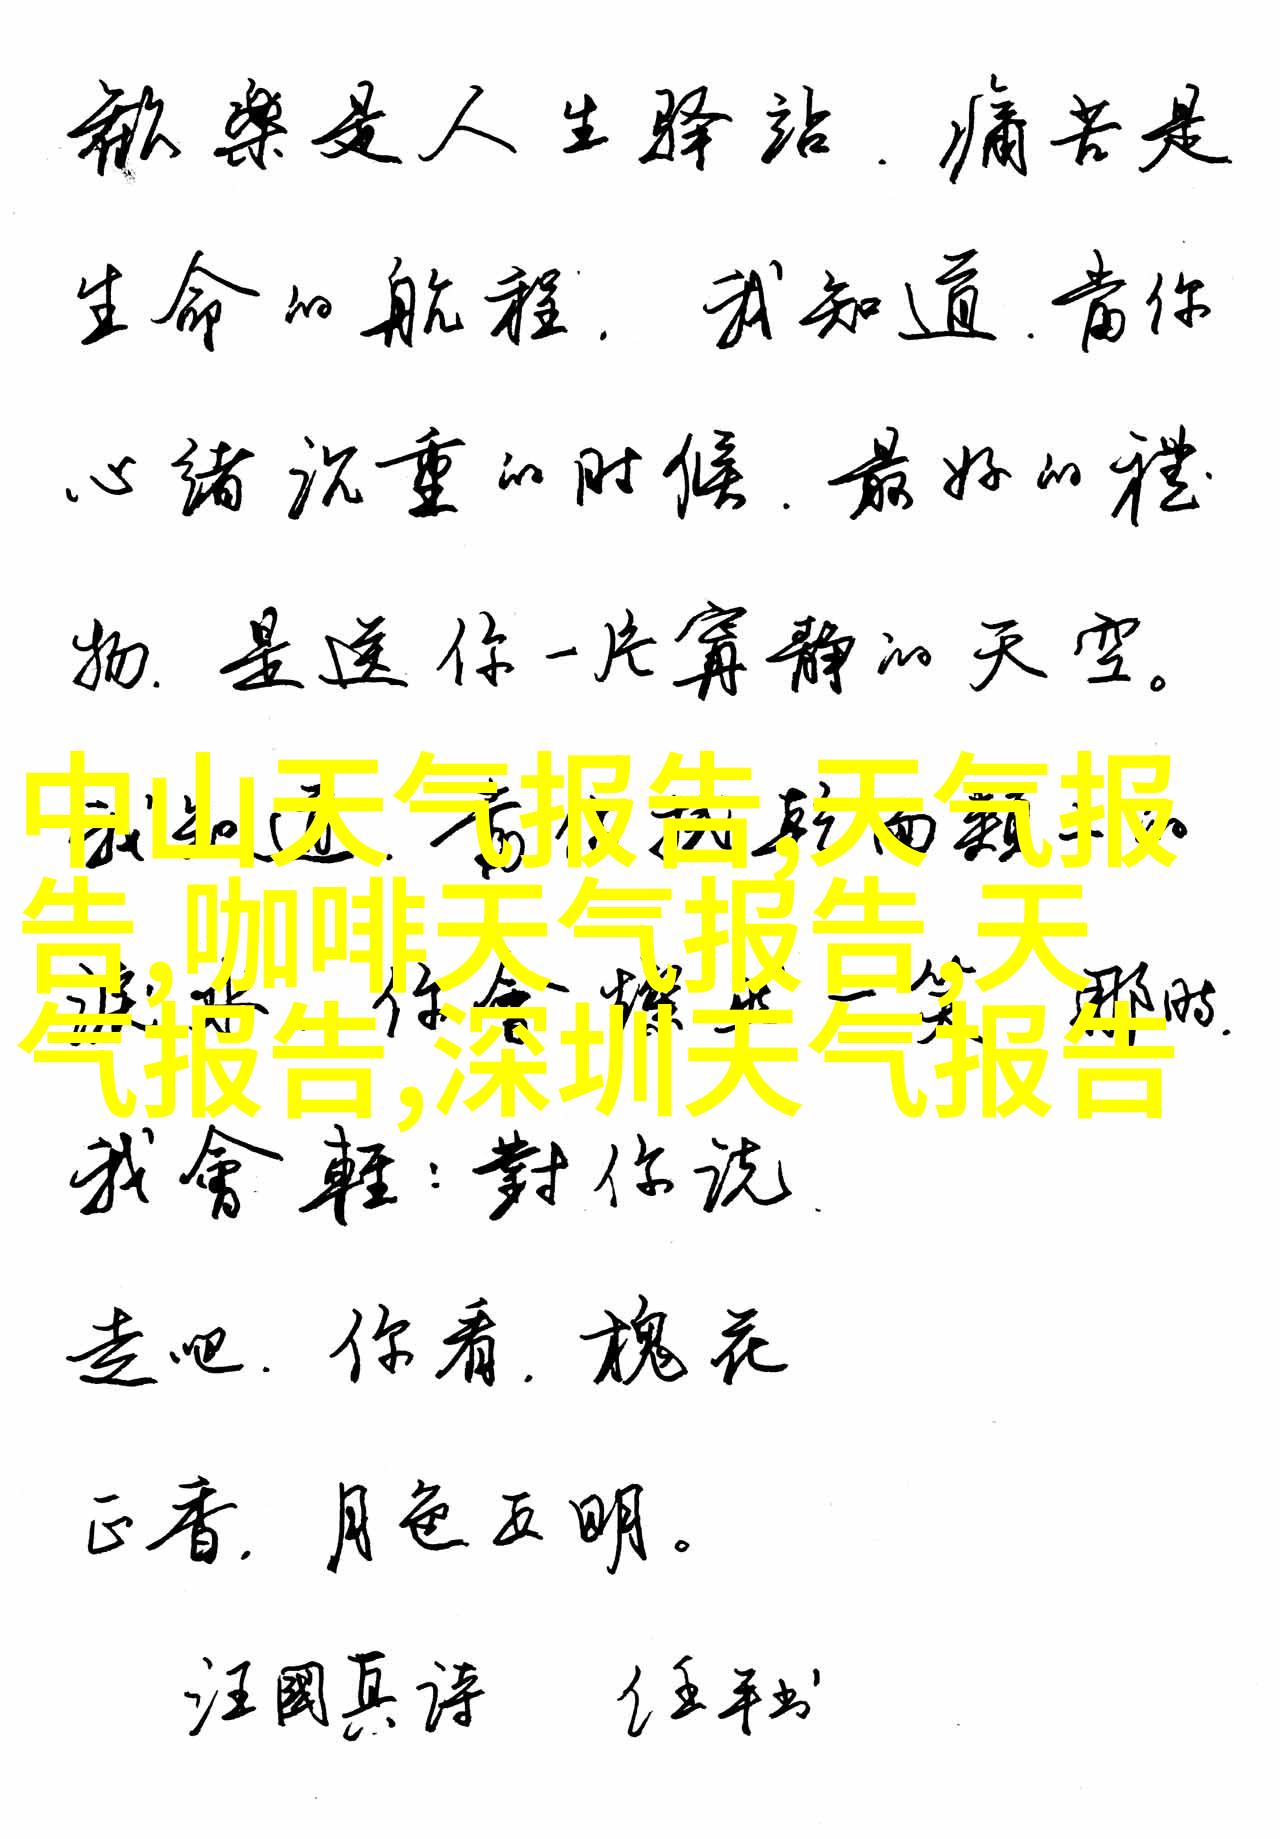 歡樂是人生驿站.痛苦是
生命的航程.我知道.當你
心緒沉重的时候.最好的禮
物.是送你一片寧靜的天空。
中山天气报告,天气报
我知道.當你
告,咖啡天气报告,天
你會一笑 那時.
气报告,深圳天气报告
我會輕:對你说.
走吧.你看.槐花
正香.月色正明。
汪國真诗 任平书